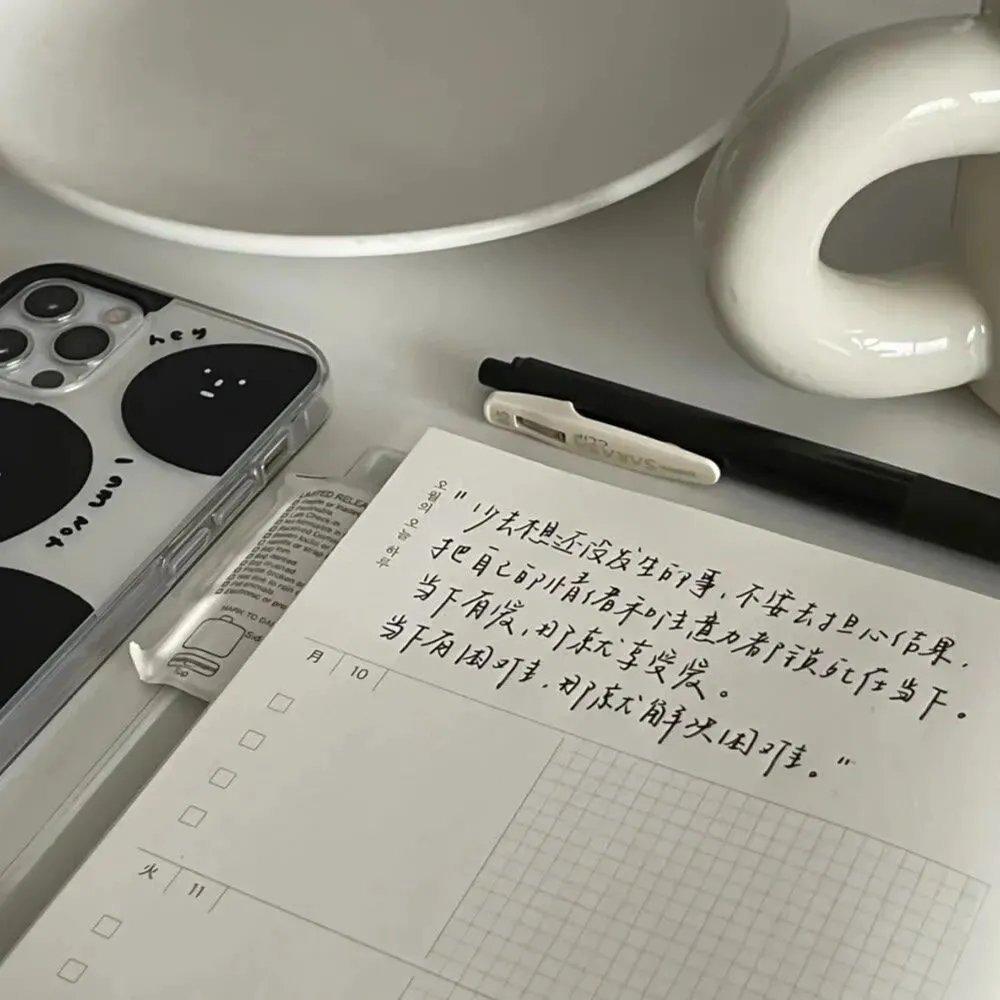 hey
I am
you
LIMITED RELEA
CLIP
SARASA
오월의 오늘 하루
"少去想还没发生的事，不要去担心结果，
把自己的情绪和注意力都锁死在当下。
当下有爱，那就享受爱。
当下有困难，那就解决困难。"
月 10
火 11